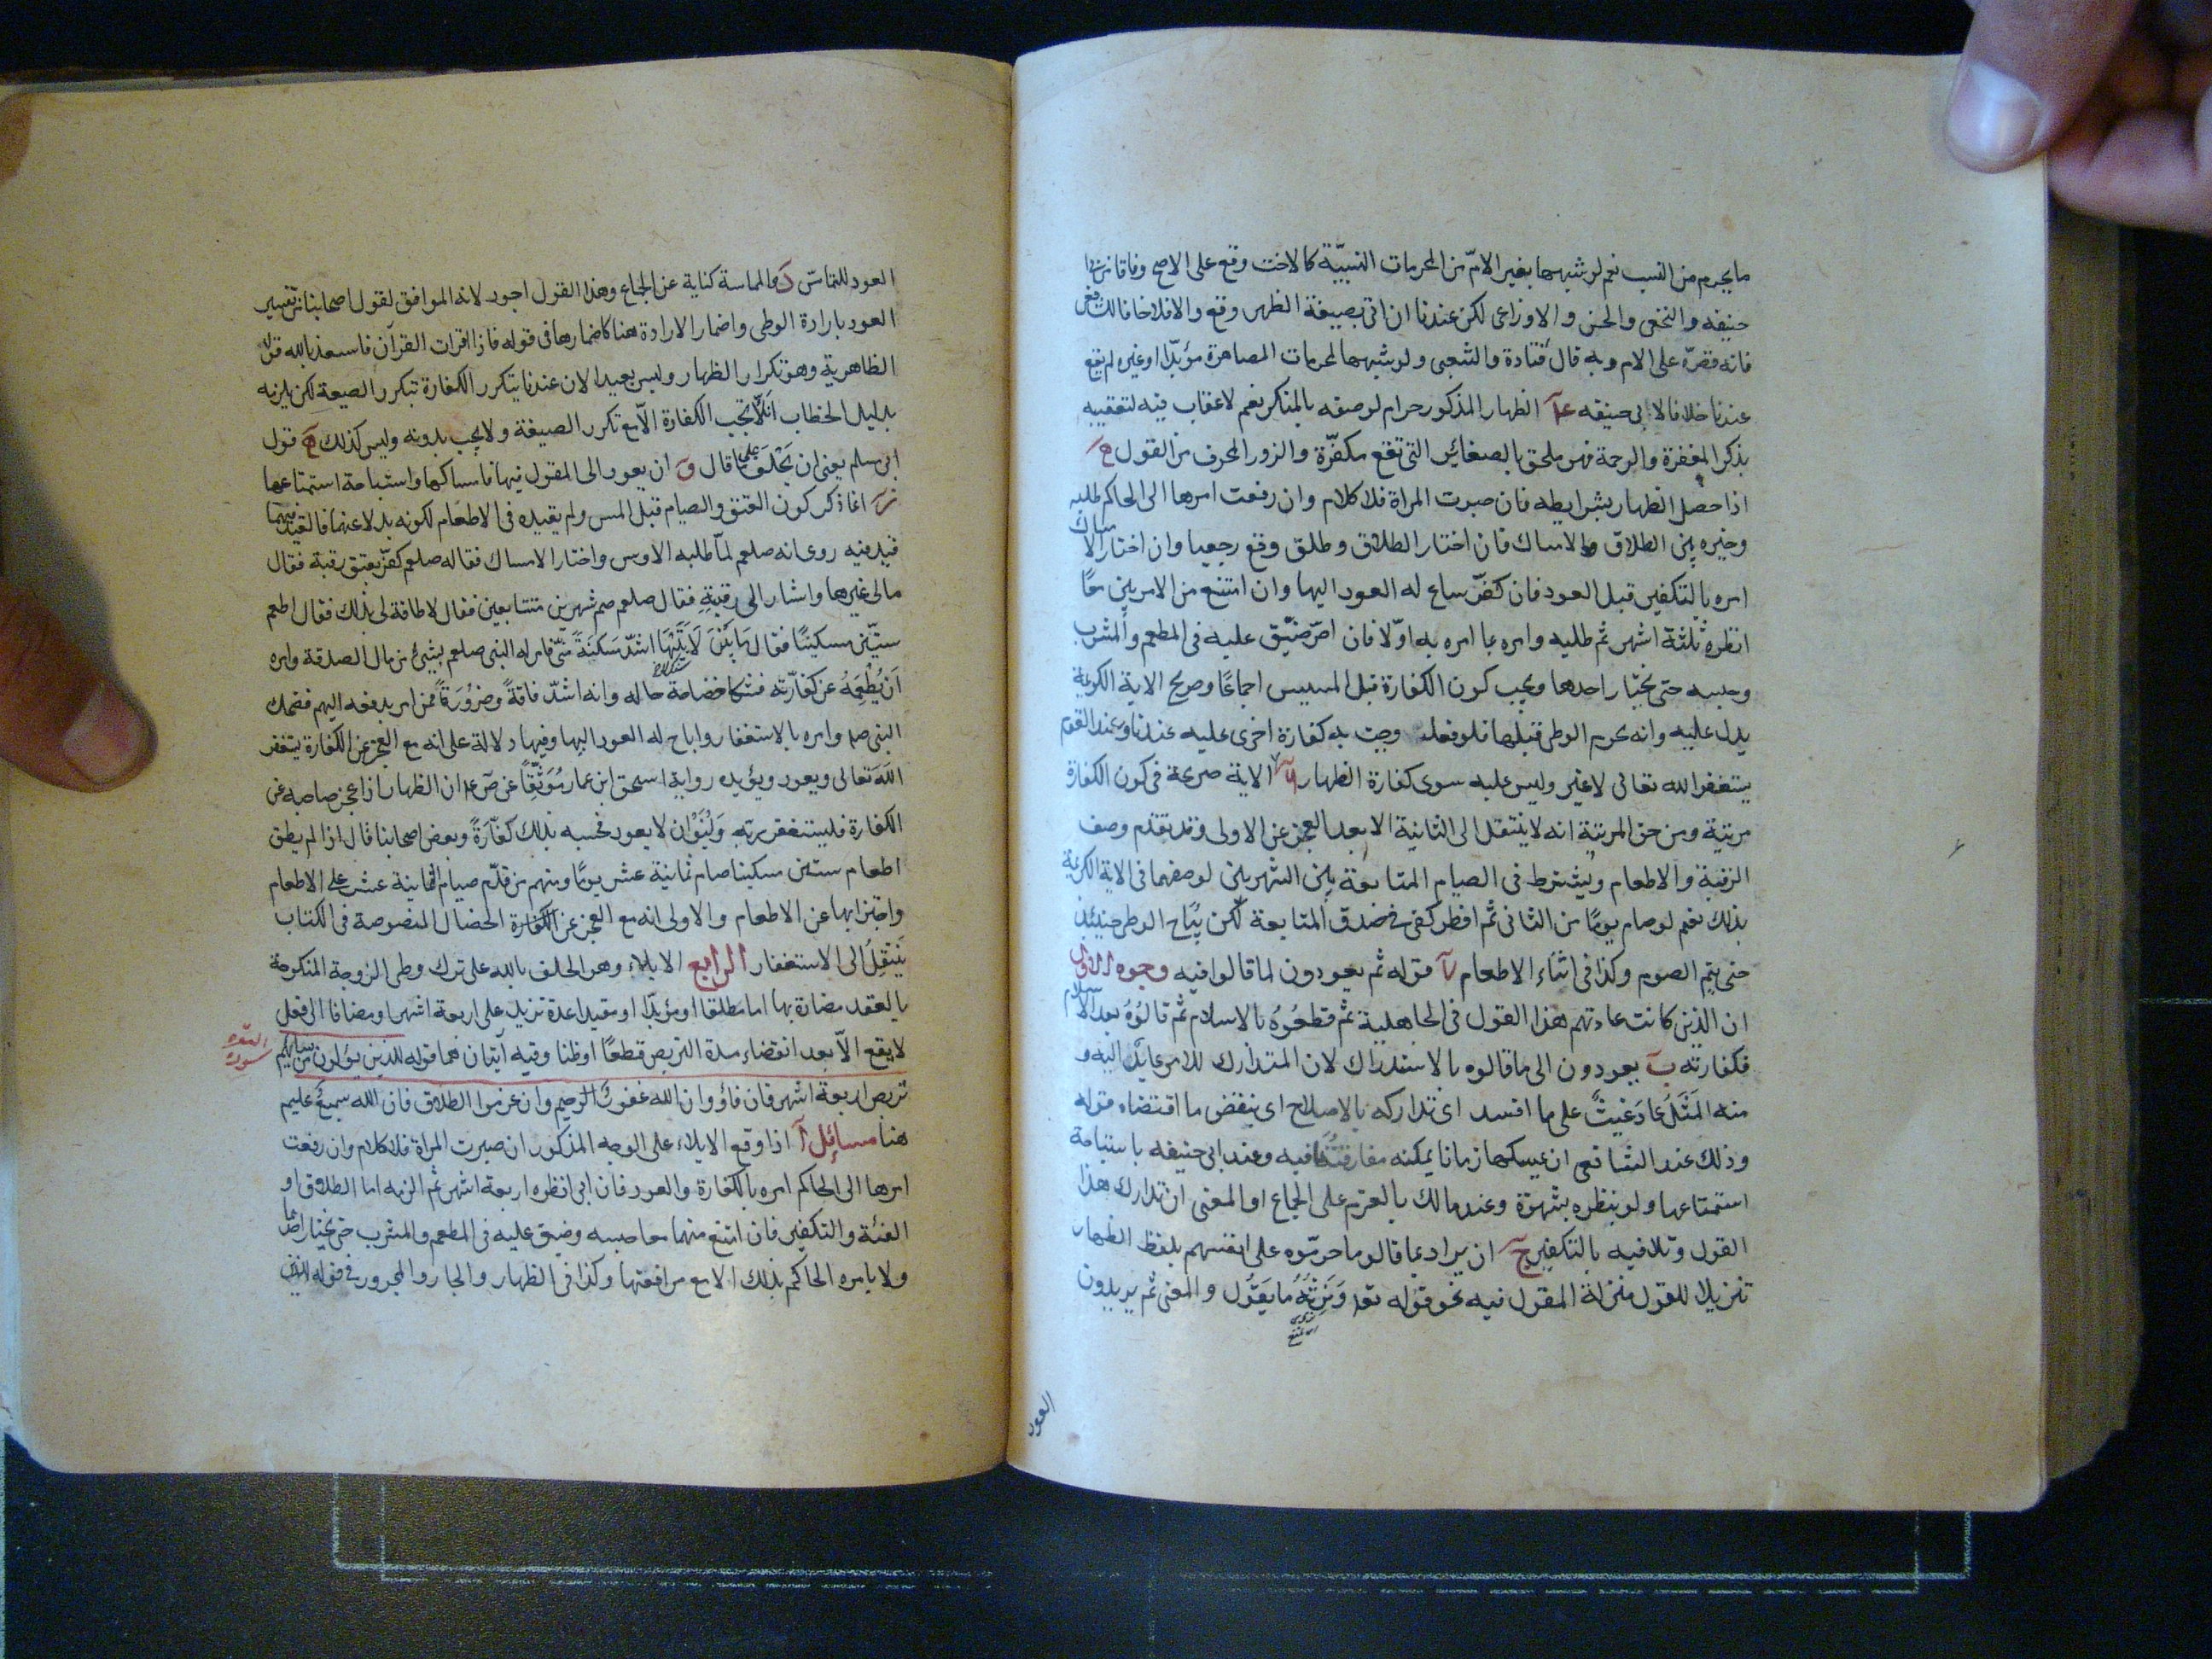 ما يحرم من النسب نعم لو شبهها بغير الام من المحرمات النسبية كالاخت وقع على الاصح وفاقا
حنيفه والنخعى والحسن والاوزاعى لكن عندنا ان اتى بصيغة الظهر وقع والا فلا خلافا
فانه قصره على الام وبه قال قتادة والشعبى ولو شبهها لمحرمات المصاهرة مؤبدا او غيره لم يقع
عندنا خلافا لابى حنيفه الظهار المذكور حرام لوصفه بالمنكر نعم لا عقاب فيه لتعقيبه
بذكر المغفرة والرحمة فهو ملحق بالصغائر التى تقع مكفرة والزور المحرف من القول
اذا حصل الظهار بشرايطه فان صبرت المراة فلا كلام وان رفعت امرها الى الحاكم طلبه
وخيره بين الطلاق والامساك فان اختار الطلاق وطلق وقع رجعيا وان اختار الامساك
امره بالتكفير قبل العود فان كفر ساغ له العود اليها وان امتنع من الامرين معًا
انظره ثلثة اشهر ثم طلبه وامره بما امره به اولا فان اصر ضيق عليه فى المطعم والمشرب
وحبسه حتى يختار احدهما ويجب كون الكفارة قبل المسيس اجماعًا وصريح الاية الكريمة
يدل عليه وانه يحرم الوطى قبلها فلو فعله وجبت به كفارة اخرى عليه عندنا وعند القوم
يستغفر الله تعالى لا غير وليس عليه سوى كفارة الظهار الاية صريحة فى كون الكفارة
مرتبة ومن حق المرتبة انه لا ينتقل الى الثانية الا بعد العجز عن الاولى وقد تقدم وصف
الرقبة والاطعام ويشترط فى الصيام المتابعة بين الشهرين لوصفهما فى الاية الكريمة
بذلك نعم لو صام يومًا من الثانى ثم افطر كفى فى صدق المتابعة لكن يباح الوطى حينئذ
حتى يتم الصوم وكذا فى اثناء الاطعام قوله ثم يعودون لما قالوا فيه وجوه الاول
ان الذين كانت عادتهم هذا القول فى الجاهلية ثم قطعوه بالاسلام ثم قالوه بعد الاسلام
فكفارته ب يعودون الى ما قالوه بالاستدراك لان المتدارك للامر عايد اليه و
منه المثل عاد غيث على ما افسد اى تداركه بالاصلاح اى ينقض ما اقتضاه قوله
وذلك عند الشافعى ان يمسكها زمانا يمكنه مفارقتها فيه وعند ابى حنيفه باستباحة
استمتاعها ولو بنظره بشهوة وعند مالك بالعزم على الجماع او المعنى ان تدارك هذا
القول وتلافيه بالتكفير ج ان يراد بما قالوا ما حرموه على انفسهم بلفظ الظهار
تنزيلا للقول منزلة المقول فيه نحو قوله تعه ونرثه ما يقول والمعنى ثم يريدون
العود
العود للتماس د والمماسة كناية عن الجماع وهذا القول اجود لانه الموافق لقول اصحابنا من تفسير
العود بارادة الوطى واضمار الارادة هنا كاضمارها فى قوله فاذا قرات القرآن فاستعذ بالله قول
الظاهرية وهو تكرار الظهار وليس بعيدا لان عندنا يتكرر الكفارة بتكرر الصيغة لكن يلزمه
بدليل الخطاب ان لا تجب الكفارة الا مع تكرر الصيغة ولا يجب بدونه وليس كذلك قول
ابى مسلم يعنى ان يحلف على ما قال و ان يعود الى المقول فيها فامساكها واستباحة استمتاعها
انما ذكر كون العتق والصيام قبل المس ولم يقيده فى الاطعام لكونه بدلا عنهما فالقيد فيهما
قيد فيه روى انه صلعم لما طلبه الاوس واختار الامساك فقال له صلعم كفر بعتق رقبة فقال
مالى غيرها واشار الى رقبته فقال صلعم صم شهرين متتابعين فقال لا طاقة لى بذلك فقال اطعم
ستين مسكينًا فقال ما بين لابتيها اشد مسكنة منى فامر له النبى صلعم بشىء من مال الصدقة وامره
ان يطعمه عن كفارته فشكا خصاصة حاله وانه اشد فاقة وضرورة ممن امر بدفعه اليهم فضحك
النبى صم وامره بالاستغفار واباح له العود اليها وفيها دلالة على انه مع العجز عن الكفارة يستغفر
الله تعالى ويعود ويؤيده رواية اسحق ابن عمار موثقًا عن ص عه ان الظهار اذا عجز صاحبه عن
الكفارة فليستغفر ربه ولينو ان لا يعود فحسبه بذلك كفارة وبعض اصحابنا قال اذا لم يطق
اطعام ستين مسكينا صام ثمانية عشر يومًا ومنهم من قدم صيام الثمانية عشر على الاطعام
واجتزا بها عن الاطعام والاولى انه مع العجز عن الكفارة الخصال المنصوصة فى الكتاب
ينتقل الى الاستغفار الرابع الايلاء وهو الحلف بالله على ترك وطى الزوجة المنكوحة
بالعقد مضارة بها اما مطلقا او مؤبدا او مقيدا بمدة تزيد على اربعة اشهر او مضافا الى فعل
لا يقع الا بعد انقضاء مدة التربص قطعًا او ظنا وفيه آيتان هما قوله للذين يؤلون من نسائهم
سورة البقرة
تربص اربعة اشهر فان فاؤ وان الله غفور الرحيم وان عزموا الطلاق فان الله سميع عليم
هنا مسائل آ اذا وقع الايلاء على الوجه المذكور ان صبرت المراة فلا كلام وان رفعت
امرها الى الحاكم امره بالكفارة والعود فان ابى انظره اربعة اشهر ثم الزمه اما الطلاق او
الفئة والتكفير فان امتنع منهما معا حبسه وضيق عليه فى المطعم والمشرب حتى يختار احدهما
ولا يامره الحاكم بذلك الا مع مرافعتها وكذا فى الظهار والجار والمجرور فى قوله للذين